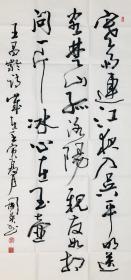 寒雨連江夜入吴平明送
客楚山孤洛陽親友如相
問一片冰心在玉壺
王昌齡詩